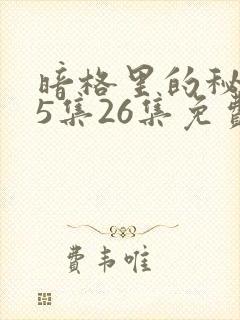 暗格里的秘
5集26集免費
費韦唯